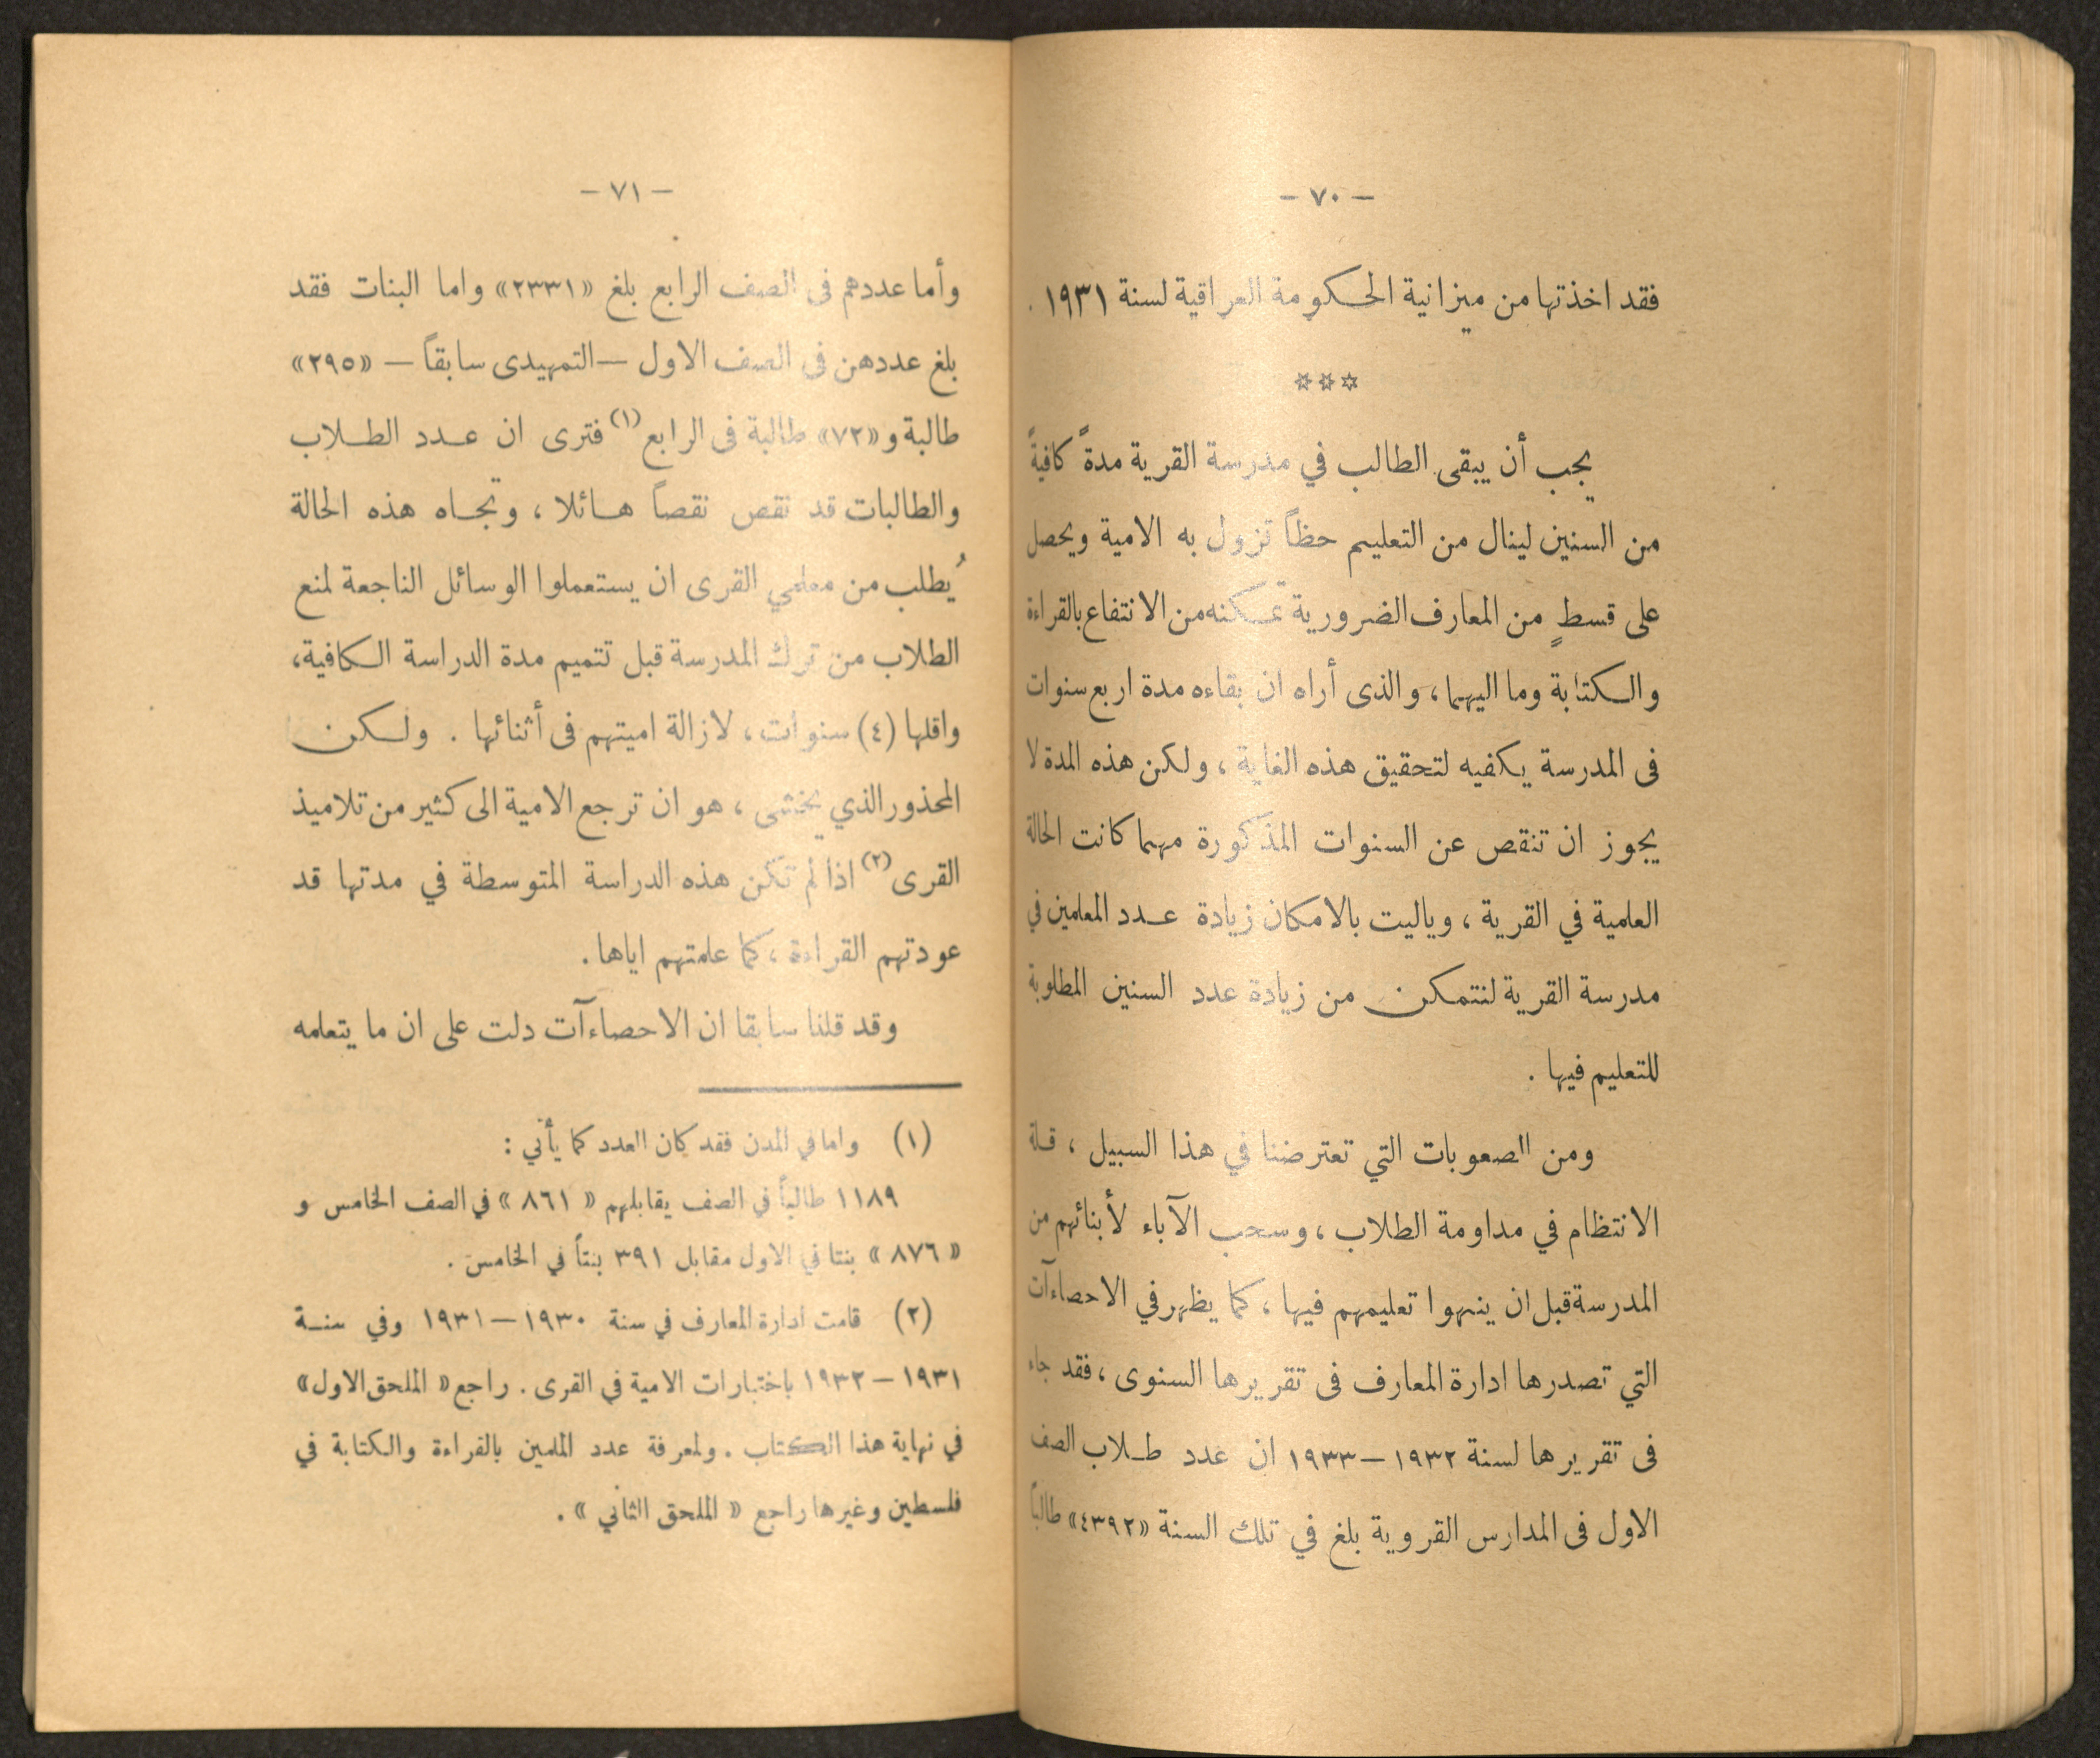 — ٧٠ —
فقد اخذتها من ميزانية الحكومة العراقية لسنة ١٩٣١ .
☆☆☆
يجب أن يبقى الطالب في مدرسة القرية مدةً كافيةً
من السنين لينال من التعليم حظاً تزول به الامية ويحصل
على قسطٍ من المعارف الضرورية تمكنه من الانتفاع بالقراءة
والكتابة وما اليهما ، والذى أراه ان بقاءه مدة اربع سنوات
فى المدرسة يكفيه لتحقيق هذه الغاية ، ولكن هذه المدة لا
يجوز ان تنقص عن السنوات المذكورة مهما كانت الحالة
العلمية في القرية ، وياليت بالامكان زيادة عدد المعلمين في
مدرسة القرية لنتمكن من زيادة عدد السنين المطلوبة
للتعليم فيها .
ومن الصعوبات التي تعترضنا في هذا السبيل ، قلة
الانتظام في مداومة الطلاب ، وسحب الآباء لأبنائهم من
المدرسة قبل ان ينهوا تعليمهم فيها ، كما يظهر في الاحصاءآت
التي تصدرها ادارة المعارف فى تقريرها السنوى ، فقد جاء
فى تقريرها لسنة ١٩٣٢ — ١٩٣٣ ان عدد طلاب الصف
الاول فى المدارس القروية بلغ في تلك السنة «٤٣٩٢» طالباً
— ٧١ —
وأما عددهم فى الصف الرابع بلغ «٢٣٣١» واما البنات فقد
بلغ عددهن فى الصف الاول — التمهيدى سابقاً — «٢٩٥»
طالبة و «٧٢» طالبة فى الرابع (١) فترى ان عدد الطلاب
والطالبات قد نقص نقصاً هائلا ، وتجاه هذه الحالة
يُطلب من معلمي القرى ان يستعملوا الوسائل الناجعة لمنع
الطلاب من ترك المدرسة قبل تتميم مدة الدراسة الكافية،
واقلها (٤) سنوات ، لازالة اميتهم فى أثنائها . ولكن
المحذور الذي يخشى ، هو ان ترجع الامية الى كثير من تلاميذ
القرى (٢) اذا لم تكن هذه الدراسة المتوسطة في مدتها قد
عودتهم القراءة ، كما علمتهم اياها .
وقد قلنا سابقا ان الاحصاءآت دلت على ان ما يتعلمه
(١) واما في المدن فقد كان العدد كما يأتي :
١١٨٩ طالباً في الصف يقابلهم « ٨٦١ » في الصف الخامس و
« ٨٧٦ » بنتا في الاول مقابل ٣٩١ بنتاً في الخامس .
(٢) قامت ادارة المعارف في سنة ١٩٣٠ — ١٩٣١ وفي سنة
١٩٣١ — ١٩٣٢ باختبارات الامية في القرى . راجع « الملحق الاول »
في نهاية هذا الكتاب . ولمعرفة عدد الملمين بالقراءة والكتابة في
فلسطين وغيرها راجع « الملحق الثاني » .